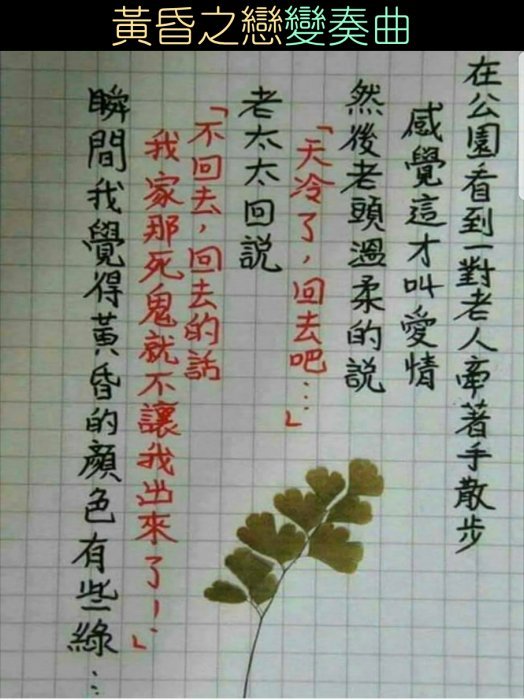 黃昏之戀變奏曲
在公園看到一對老人牽著手散步
感覺這才叫愛情
然後老頭溫柔的說
「天冷了，回去吧…」
老太太回說
「不回去，回去的話
我家那死鬼就不讓我出來了！」
瞬間我覺得黃昏的顏色有些綠…